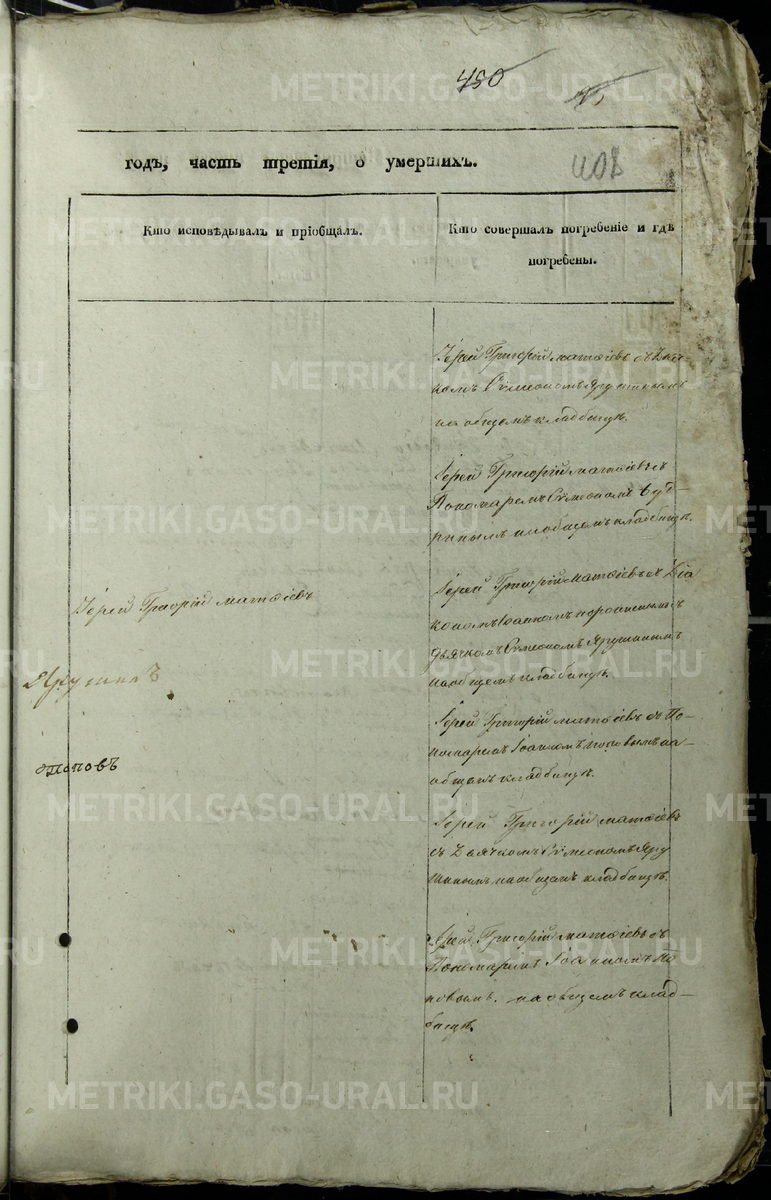 450
75
408
годъ, часть третія, о умершихъ.
Кто исповѣдывалъ и пріобщалъ.
Кто совершалъ погребеніе и гдѣ
погребены.
Іерей Григорій Матѳіевъ съ Дьяч-
комъ Сѵмеономъ Ярушинымъ
на общемъ кладбищѣ.
Іерей Григорій Матѳіевъ съ
Пономаремъ Сѵмеономъ
на общемъ кладбищѣ.
Іерей Григорій Матѳіевъ
Іерей Григорій Матѳіевъ съ Діа
кономъ Іоанномъ
дьячкомъ Сѵмеономъ Ярушинымъ
на общемъ кладбищѣ.
Ярушинъ
Іерей Григорій Матѳіевъ съ По-
номаремъ Іоанномъ Поповымъ на
общемъ кладбищѣ.
Поповъ
Іерей Григорій Матѳіевъ
съ Дьячкомъ Сѵмеономъ Яру
шинымъ на общемъ кладбищѣ.
Іерей Григорій Матѳіевъ съ
Пономаремъ Іоанномъ По
повымъ. на общемъ клад-
бищѣ.
METRIKI.GASO-URAL.RU